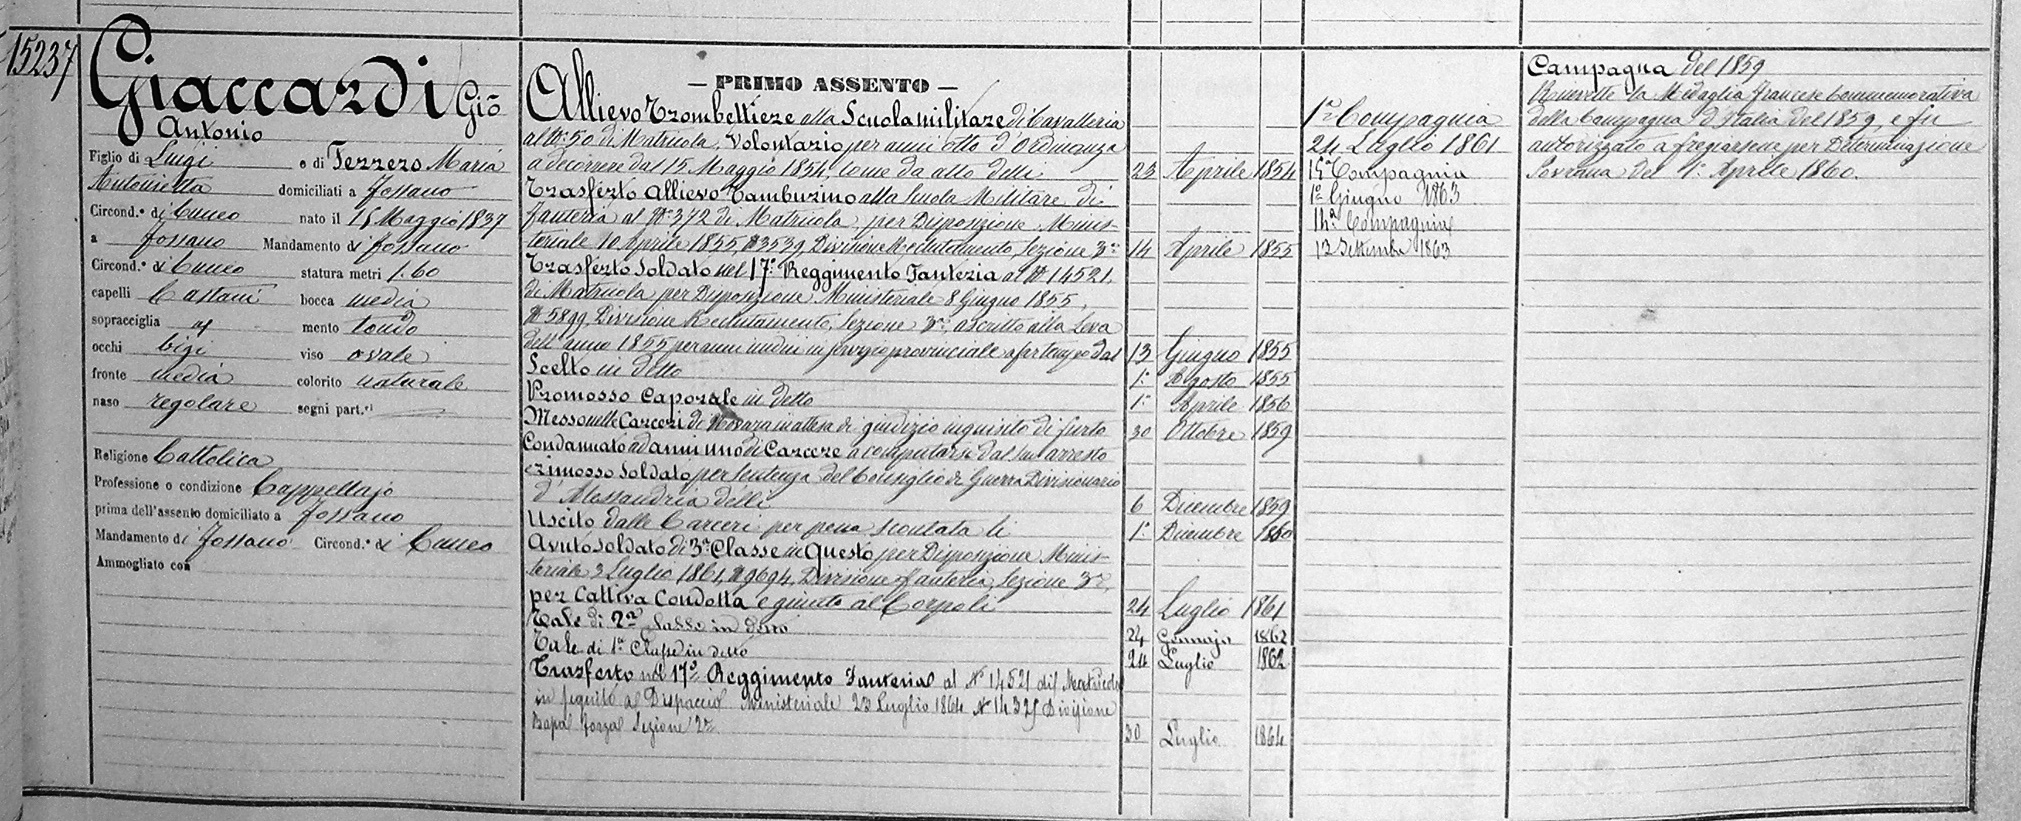 15237
Giaccardi Gio
Antonio
Figlio di Luigi e di Ferrero Maria
Antonietta domiciliati a Fossano
Circond.º di Cuneo nato il 15 Maggio 1837
a Fossano Mandamento di Fossano
Circond.º di Cuneo statura metri 1.60
capelli Castani bocca media
sopracciglia id mento tondo
occhi bigi viso ovale
fronte media colorito naturale
naso regolare segni part.ri
Religione Cattolica
Professione o condizione Cappellajo
prima dell'assento domiciliato a Fossano
Mandamento di Fossano Circond.º di Cuneo
Ammogliato con
— PRIMO ASSENTO —
Allievo Trombettiere alla Scuola militare di Cavalleria
al Nº 50 di Matricola, Volontario per anni otto d'Ordinanza
a decorrere dal 15 Maggio 1854, come da atto delli 23 Aprile 1854
Trasferto Allievo Tamburino alla Scuola Militare di
fanteria al Nº 372 di Matricola per Disposizione Minis-
teriale 10 Aprile 1855, Nº 3539, Divisione Reclutamento, Sezione 3ª 14 Aprile 1855
Trasferto Soldato nel 17º Reggimento Fanteria al Nº 14521
di Matricola per Disposizione Ministeriale 8 Giugno 1855,
Nº 5899, Divisione Reclutamento, Sezione 3ª, ascritto alla Leva
dell'anno 1855 per anni undici in servizio provinciale a far tempo dal 13 Giugno 1855
Scelto in detto 1º Agosto 1855
Promosso Caporale in detto 1º Aprile 1856
Messo nelle Carceri di Novara in attesa di giudizio inquisito di furto 30 Ottobre 1859
Condannato ad anni uno di Carcere a computarsi dal suo arresto
e rimosso Soldato per sentenza del Consiglio di Guerra Divisionario
d'Alessandria delli 6 Dicembre 1859
Uscito dalle Carceri per pena scontata li 1º Dicembre 1860
Avuto soldato di 3ª Classe in Questo per Disposizione Minis-
teriale 3 Luglio 1861, Nº 9694, Divisione fanteria, Sezione 3ª,
per Cattiva Condotta e giunto al Corpo li 24 Luglio 1861
Tale di 2ª Classe in detto 24 Gennajo 1862
Tale di 1ª Classe in detto 24 Luglio 1862
Trasferto nel 17º Reggimento Fanteria al Nº 14521 di Matricola
in seguito al Dispaccio Ministeriale 23 Luglio 1864 Nº 14325 Divisione
Bassa forza Sezione 2ª 30 Luglio 1864
1ª Compagnia
24 Luglio 1861
15ª Compagnia
1º Giugno 1863
14ª Compagnia
12 Settembre 1863
Campagna del 1859
Ricevette la Medaglia francese Commemorativa
della Campagna d'Italia del 1859, e fu
autorizzato a fregiarsene per Determinazione
Sovrana del 1º Aprile 1860.